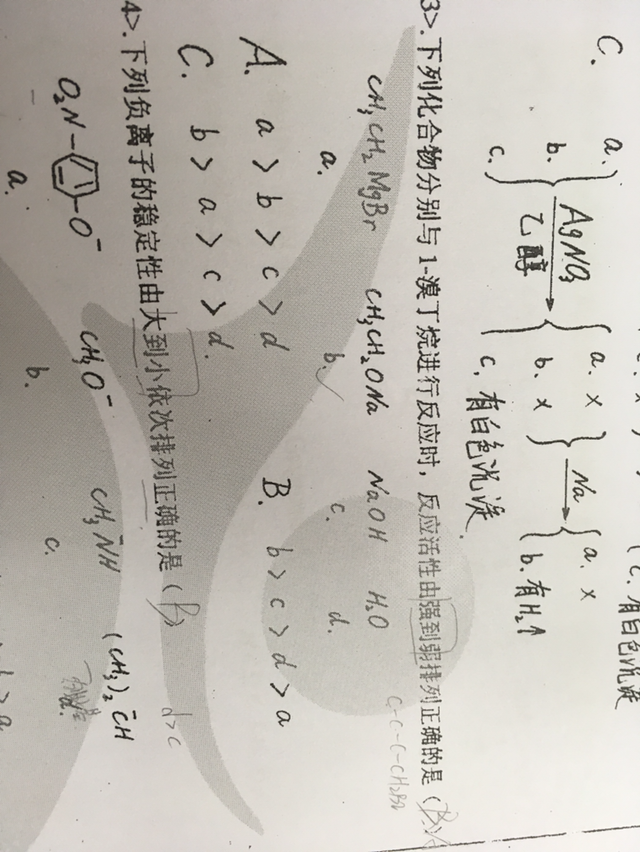 C. a. b. c. AgNO₃ 乙醇 a. × b. × c. 有白色沉淀. Na a. × b. 有H₂↑
c. 有白色沉淀
3>. 下列化合物分别与1-溴丁烷进行反应时，反应活性由强到弱排列正确的是（B）
C-C-C-CH₂Br
CH₃CH₂MgBr CH₃CH₂ONa NaOH H₂O
a. b. ✓ c. d.
A. a > b > c > d B. b > c > d > a
C. b > a > c > d.
4>. 下列负离子的稳定性由大到小依次排列正确的是（B）
d>c
O₂N- -O⁻ CH₃O⁻ CH₃N̄H (CH₃)₂C̄H
a. b. c. d.